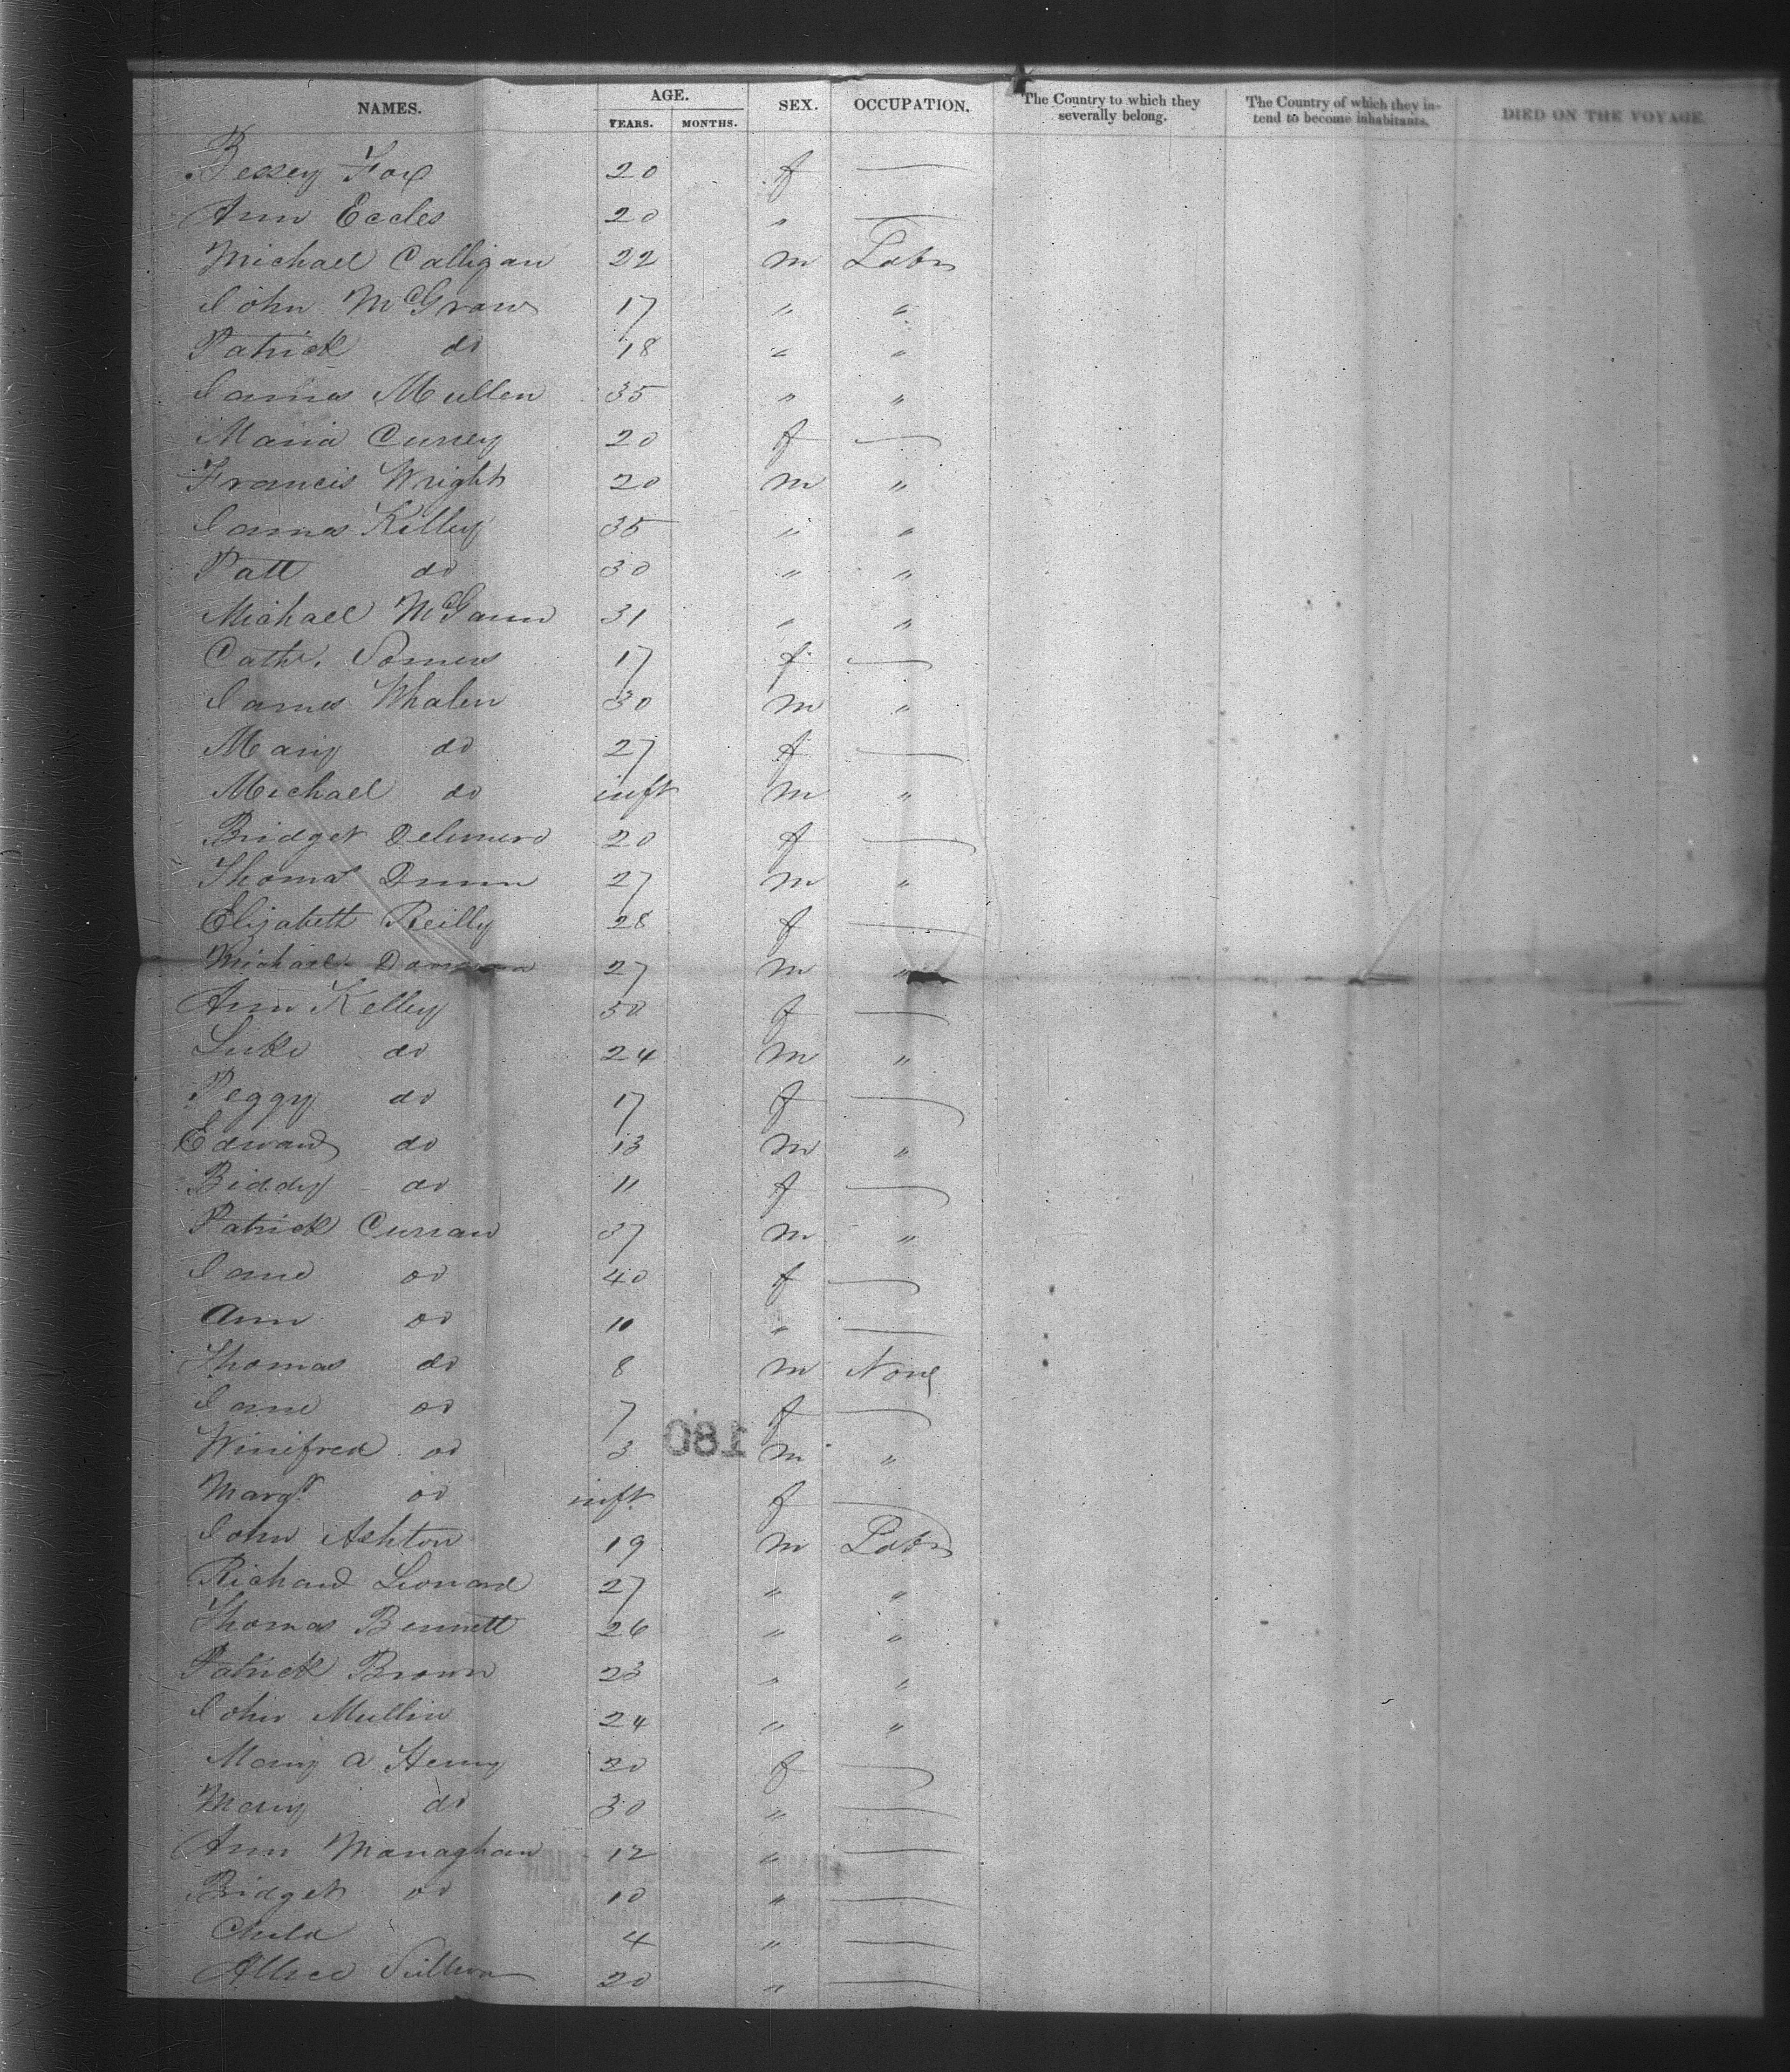 NAMES. AGE. SEX. OCCUPATION. The Country to which they severally belong. The Country of which they intend to become inhabitants. DIED ON THE VOYAGE.
YEARS. MONTHS.
Bessey Fox 20 f —
Ann Eccles 20 " —
Michael Calligan 22 m Labr
John McGraw 17 " "
Patrick do 18 " "
James Mullen 35 " "
Maria Currey 20 f —
Francis Wright 20 m "
James Kelley 35 " "
Patt do 30 " "
Michael McGann 31 " "
Cathe. Somers 17 f —
James Whalen 30 m "
Mary do 27 f —
Michael do inft m "
Bridget 20 f —
Thomas Dunn 27 m "
Elizabeth Reilly 28 f —
Michael 27 m "
Ann Kelley 50 f —
Luke do 24 m "
Peggy do 17 f —
Edward do 13 m "
Biddy do 11 f —
Patrick Curran 37 m "
Jane do 40 f —
Ann do 10 " —
Thomas do 8 m None
Jane do 7 f —
Winifred do 3 m "
Margt do inft f —
John Ashton 19 m Labr
Richard Leonard 27 " "
Thomas Bennett 26 " "
Patrick Brown 23 " "
John Mullin 24 " "
Mary A Henry 20 f —
Mary do 30 " —
Ann Managhan 12 " —
Bridget do 10 " —
Child 4 " —
Allice Sullivan 20 " —
180